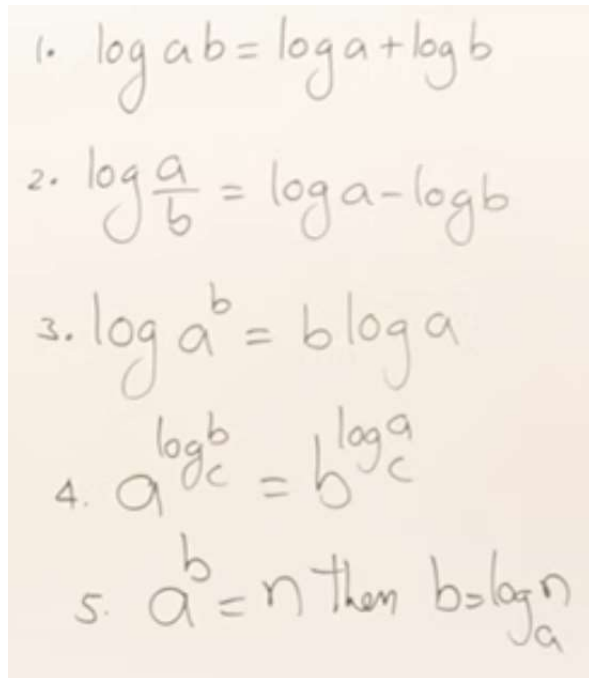 1. log ab = log a + log b
2. log a/b = log a - log b
3. log a^b = b log a
4. a^(log_c b) = b^(log_c a)
5. a^b = n then b = log_a n